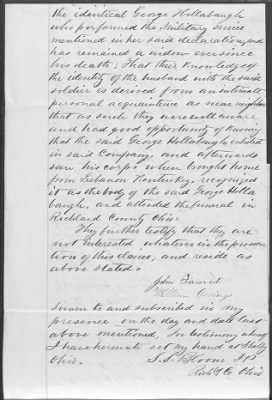 the identical George Hollabaugh
who performed the Military service
mentioned in her said declaration, and
has remained a widow ever since
his death; That their knowledge of
the identity of the husband with the said
soldier is derived from an intimate
personal acquaintance as near neighbors
that as such they were well aware
and had good opportunity of knowing
that the said George Hollabaugh enlisted
in said Company, and afterwards
saw his corpse when brought home
from Lebanon Kentucky, recognized
it as the body of the said George Holla
baugh, and attended the funeral in
Richland County Ohio.
They further testify that they are
not interested whatever in the prosecu
tion of this claim, and reside as
above stated.
John
William
Sworn to and subscribed in my
presence on the day and date last
above mentioned, In testimony whereof
I have hereunto set my hand at Shelby
Ohio. S.S. Bloom J.P.
Richl'd Co Ohio